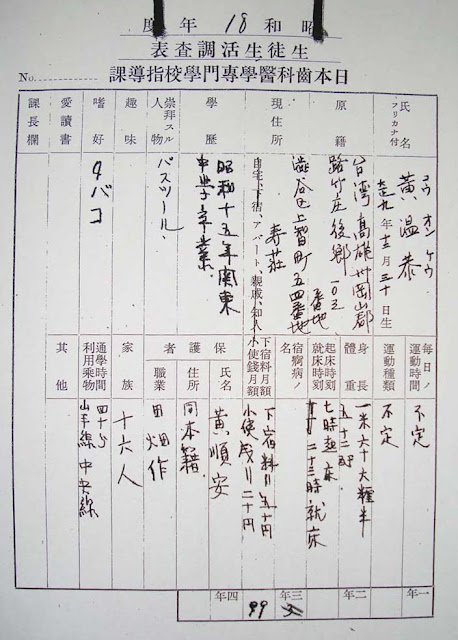 昭和18年度
生徒生活調查表
日本齒科醫學專門學校指導課
No.
氏名
フリカナ付
コウ オン
黃温恭
九年十二月三十日生
原籍
台湾高雄州岡山郡
路竹庄後郷一〇三番地
現住所
澁谷区上智町五四番地
寿莊
自宅、下宿、アパート、親戚、知人
學歷
昭和十五年関東
中学卒業
崇拜スル人物
パスツール
趣味
嗜好
タバコ
愛讀書
課長欄
每日ノ運動時間
不定
運動種類
不定
身長
一米六十六糎半
體重
五十二瓩
起床時刻
七時起床
就床時刻
二十三時就床
宿痾病ノ名
下宿料月額
下宿料〃五十円
小使錢月額
小使銭〃二十円
保護者
氏名
黃順安
住所
同本籍
職業
田畑作
家族
十六人
通學時間
四十分
利用乘物
山手線 中央線
其他
一年
二年
三年
四年
99